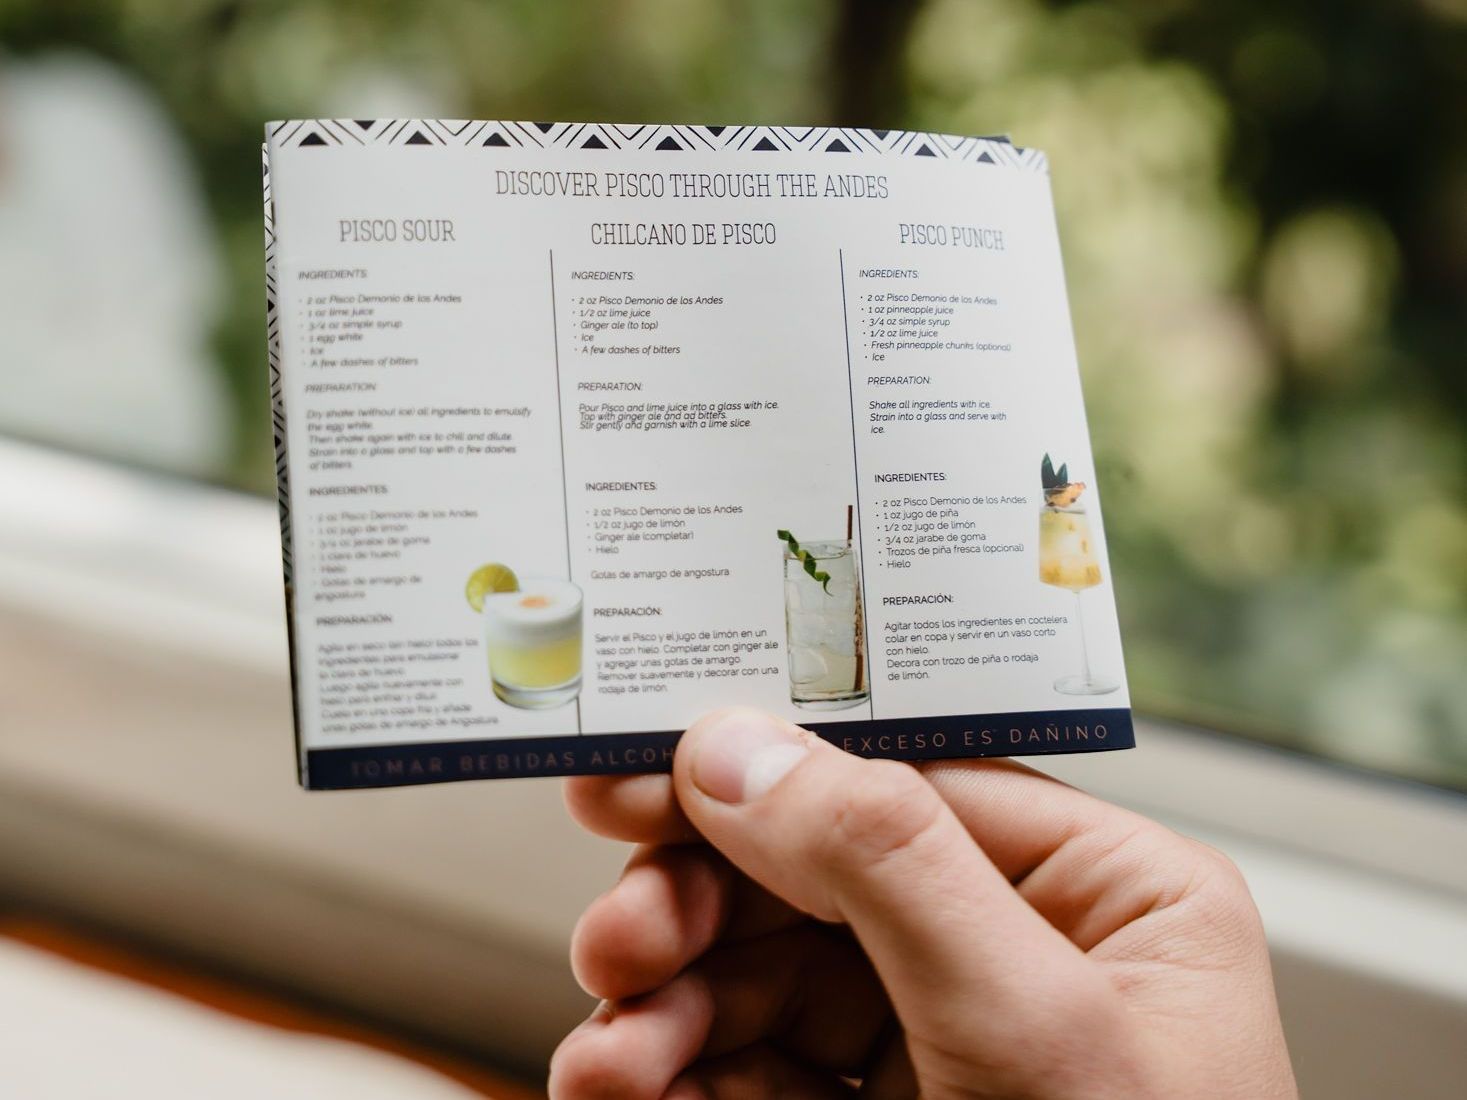 DISCOVER PISCO THROUGH THE ANDES
PISCO SOUR
INGREDIENTS:
• 2 oz Pisco Demonio de los Andes
• 1 oz lime juice
• 3/4 oz simple syrup
• 1 egg white
• Ice
• A few dashes of bitters
PREPARATION:
Dry shake (without ice) all ingredients to emulsify
the egg white.
Then shake again with ice to chill and dilute.
Strain into a glass and top with a few dashes
of bitters.
INGREDIENTES:
• 2 oz Pisco Demonio de los Andes
• 1 oz jugo de limón
• 3/4 oz jarabe de goma
• 1 clara de huevo
• Hielo
• Gotas de amargo de
angostura
PREPARACIÓN:
Agita en seco (sin hielo) todos los
ingredientes para emulsionar
la clara de huevo.
Luego agita nuevamente con
hielo para enfriar y diluir.
Cuela en una copa fría y añade
unas gotas de amargo de Angostura.
CHILCANO DE PISCO
INGREDIENTS:
• 2 oz Pisco Demonio de los Andes
• 1/2 oz lime juice
• Ginger ale (to top)
• Ice
• A few dashes of bitters
PREPARATION:
Pour Pisco and lime juice into a glass with ice.
Top with ginger ale and ad bitters.
Stir gently and garnish with a lime slice.
INGREDIENTES:
• 2 oz Pisco Demonio de los Andes
• 1/2 oz jugo de limón
• Ginger ale (completar)
• Hielo
Gotas de amargo de angostura
PREPARACIÓN:
Servir el Pisco y el jugo de limón en un
vaso con hielo. Completar con ginger ale
y agregar unas gotas de amargo.
Remover suavemente y decorar con una
rodaja de limón.
PISCO PUNCH
INGREDIENTS:
• 2 oz Pisco Demonio de los Andes
• 1 oz pinneapple juice
• 3/4 oz simple syrup
• 1/2 oz lime juice
• Fresh pinneapple chunks (optional)
• Ice
PREPARATION:
Shake all ingredients with ice.
Strain into a glass and serve with
ice.
INGREDIENTES:
• 2 oz Pisco Demonio de los Andes
• 1 oz jugo de piña
• 1/2 oz jugo de limón
• 3/4 oz jarabe de goma
• Trozos de piña fresca (opcional)
• Hielo
PREPARACIÓN:
Agitar todos los ingredientes en coctelera
colar en copa y servir en un vaso corto
con hielo.
Decora con trozo de piña o rodaja
de limón.
TOMAR BEBIDAS ALCOH EXCESO ES DAÑINO